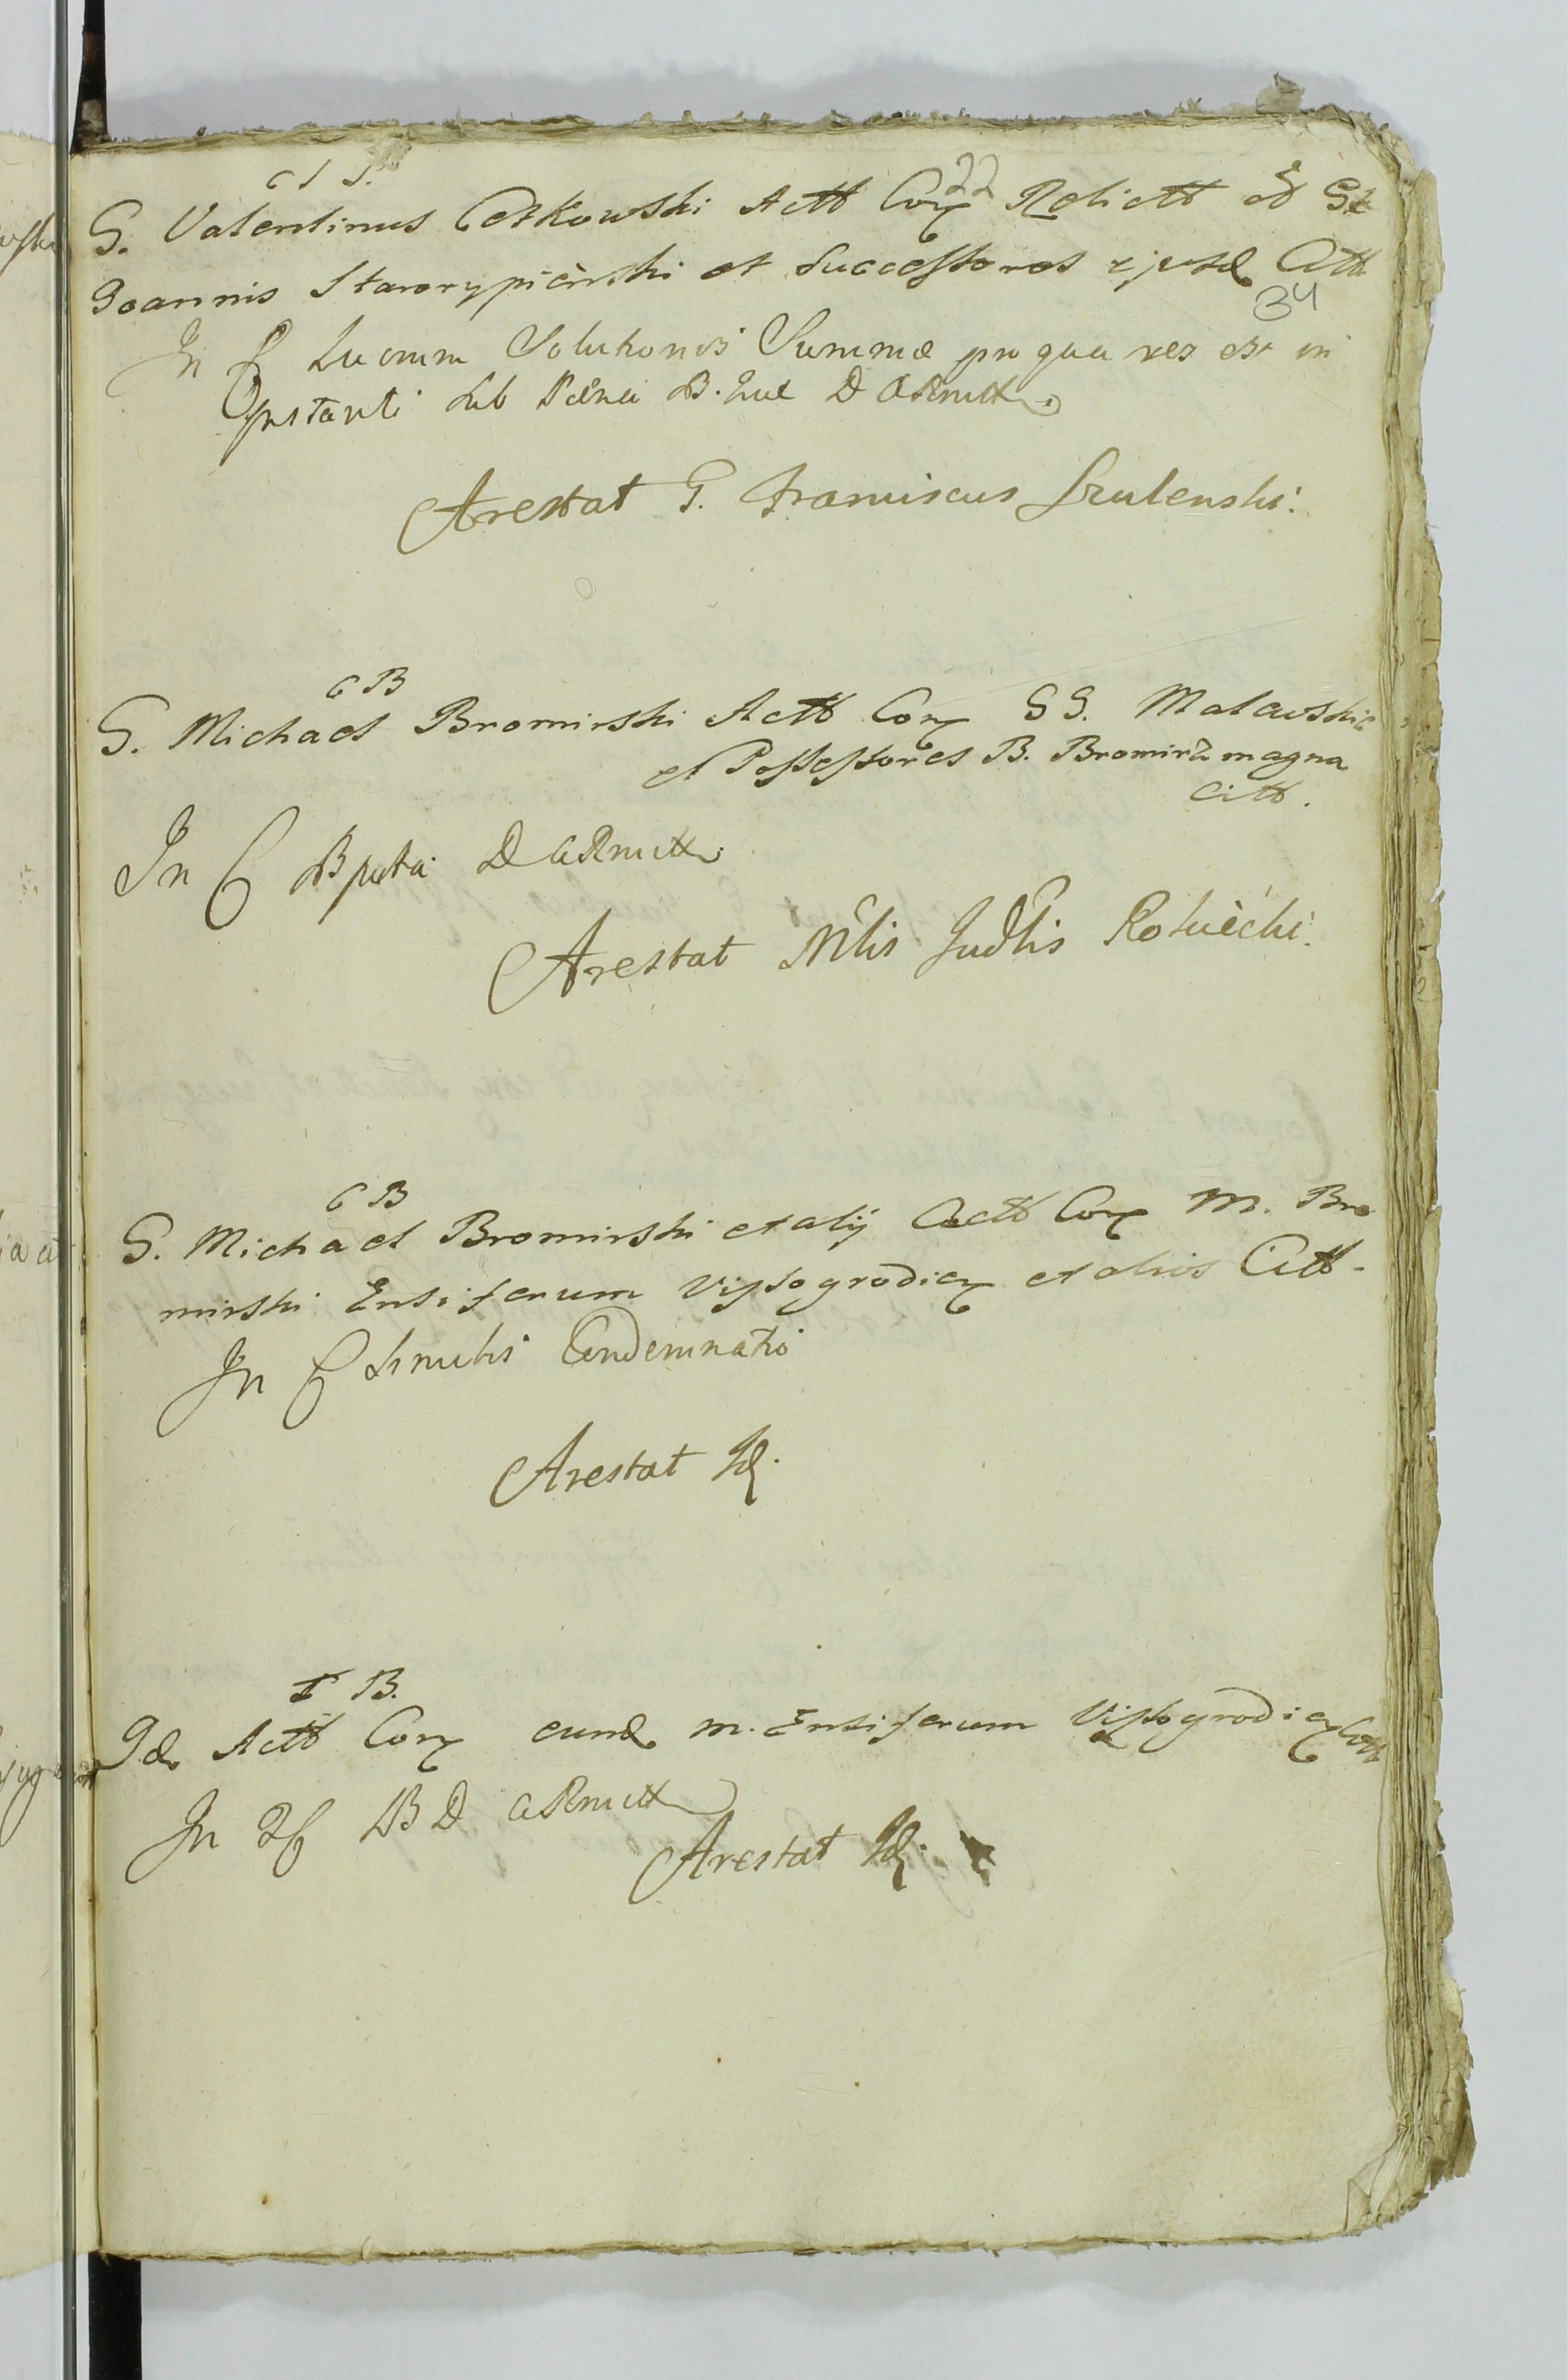 22
C S S.
G. Valentinus Cetkowski Actt Corx Relictt et Gt
Joannis Stararypiński et Successores ejusd Citt
34
In C Lucrum Solutionis Summæ pro qua res est in
Instanti sub Pæna B. D ARmitt
Arestat G. Franciscus Szulenski.
C B
G. Michael Bromirski Actt Corx GG. Malewskie
et Possessores B. Bromirz magna
Citt.
In C D ARmitt
Arestat Mlis Judlis Rościechi.
C B
G. Michael Bromirski et alij Actt Corx M. Bro
mirski Ensiferum Vissogrodiex et alios Citt.
In C Condemnatio
Arestat Id.
T B.
Id. Actt Corx eund M. Ensiferum Vissogrodiex Citt
In 2 C B D ARmitt
Arestat Id.